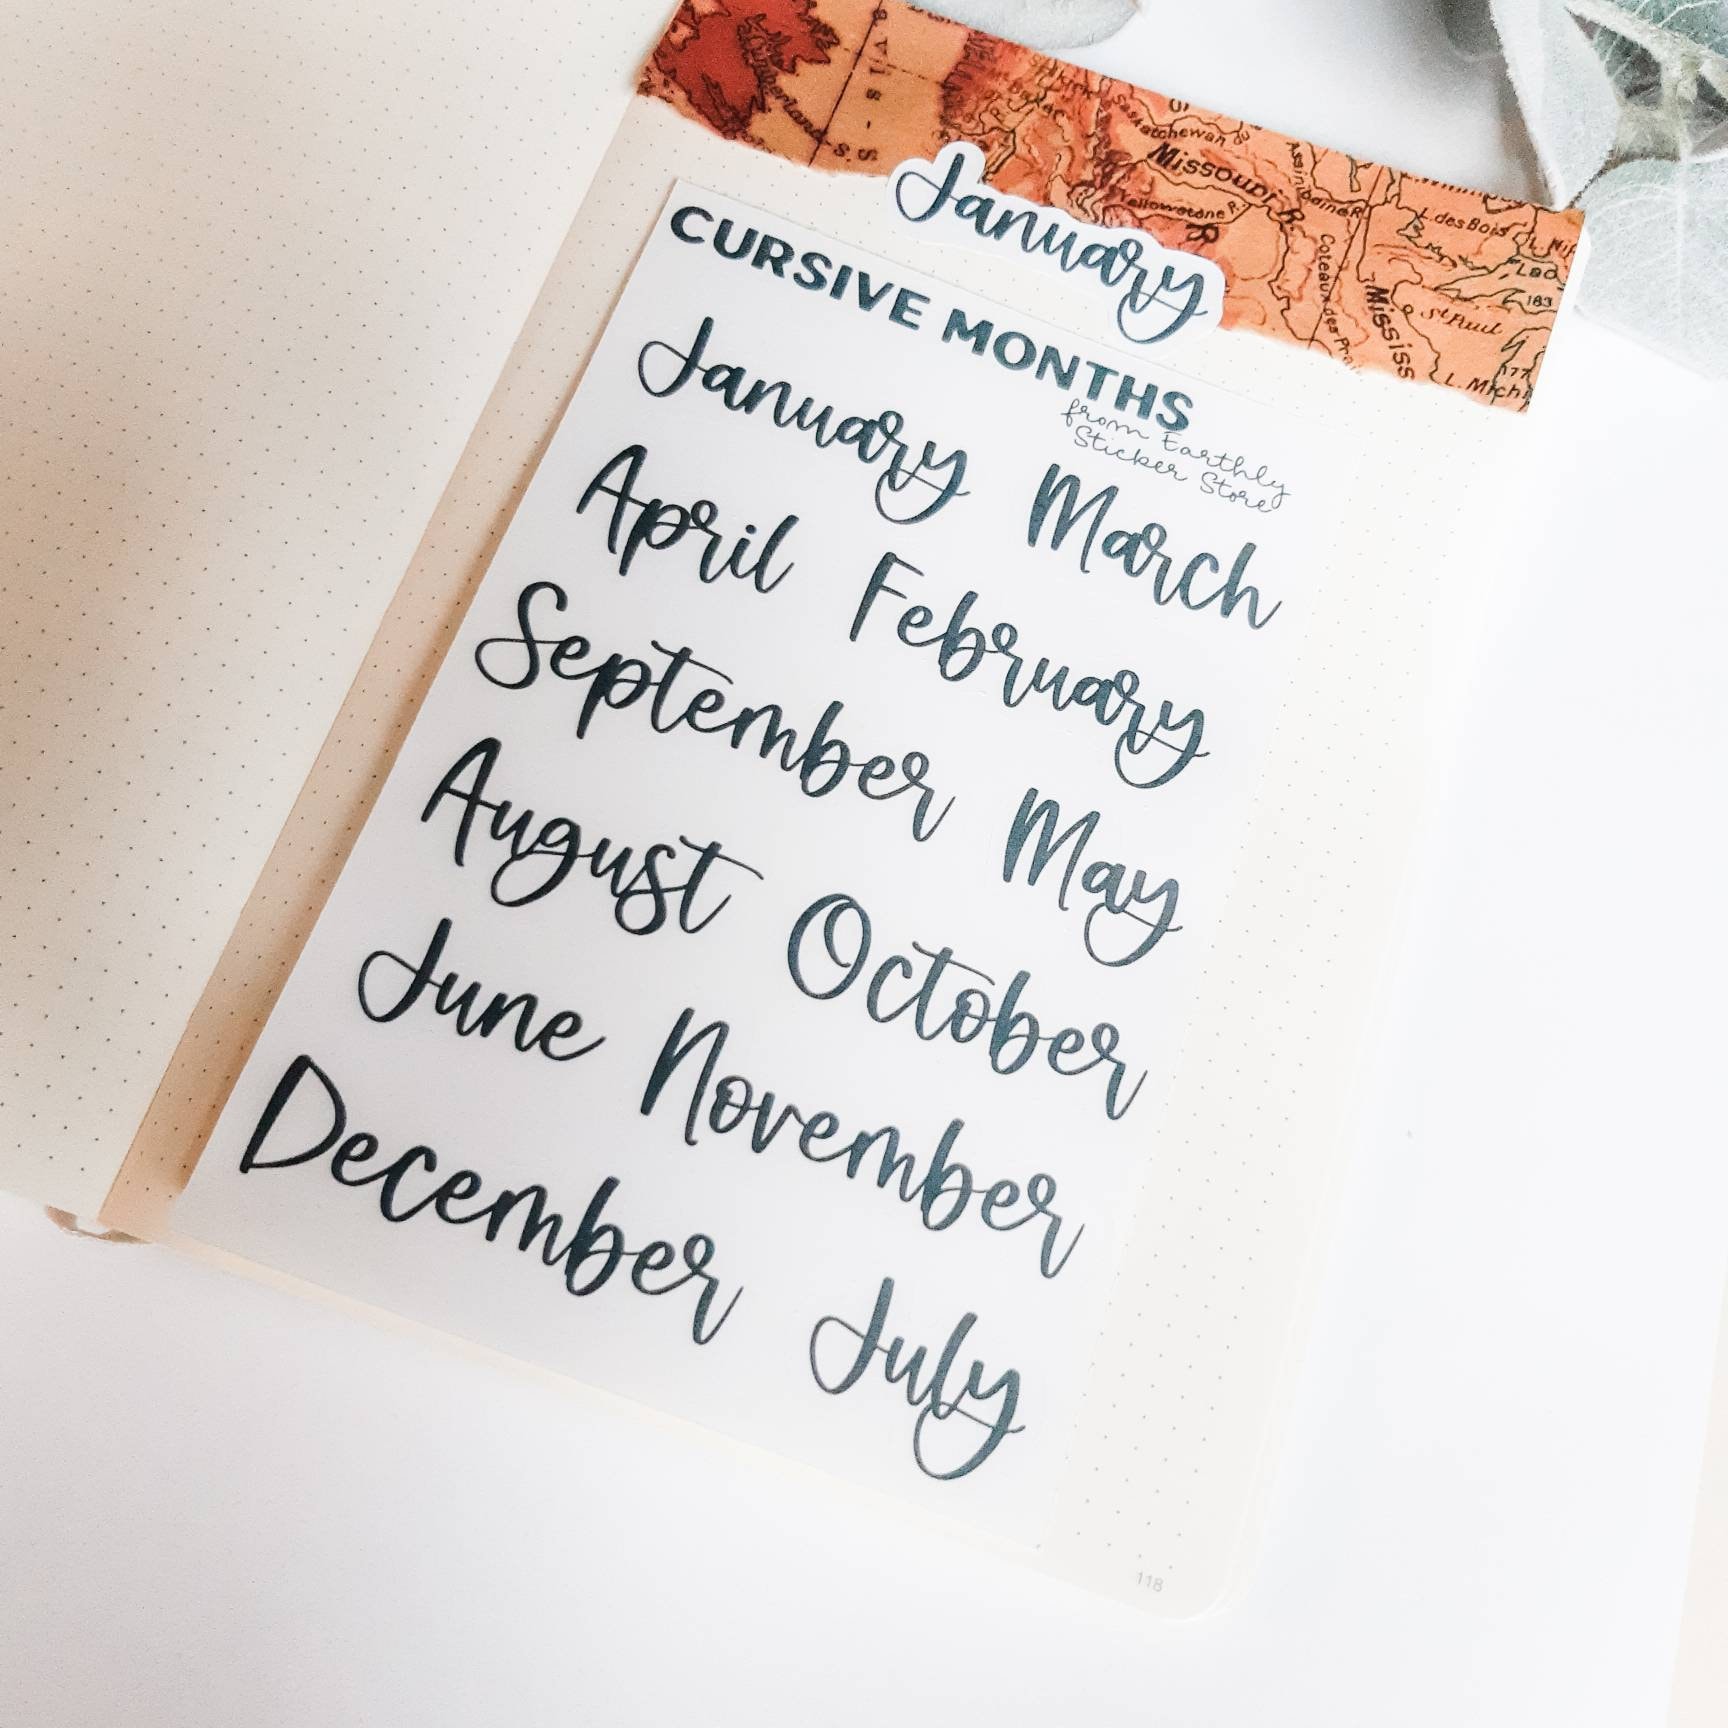 January
CURSIVE MONTHS
from Earthly
Sticker Store
January March
April February
September May
August October
June November
December July
Saskatchewan
Missouri R.
Yellowstone R.
Assiniboine R.
L. des Bois
Coteau des
St Paul
Mississ
183
177
L. Michi
118